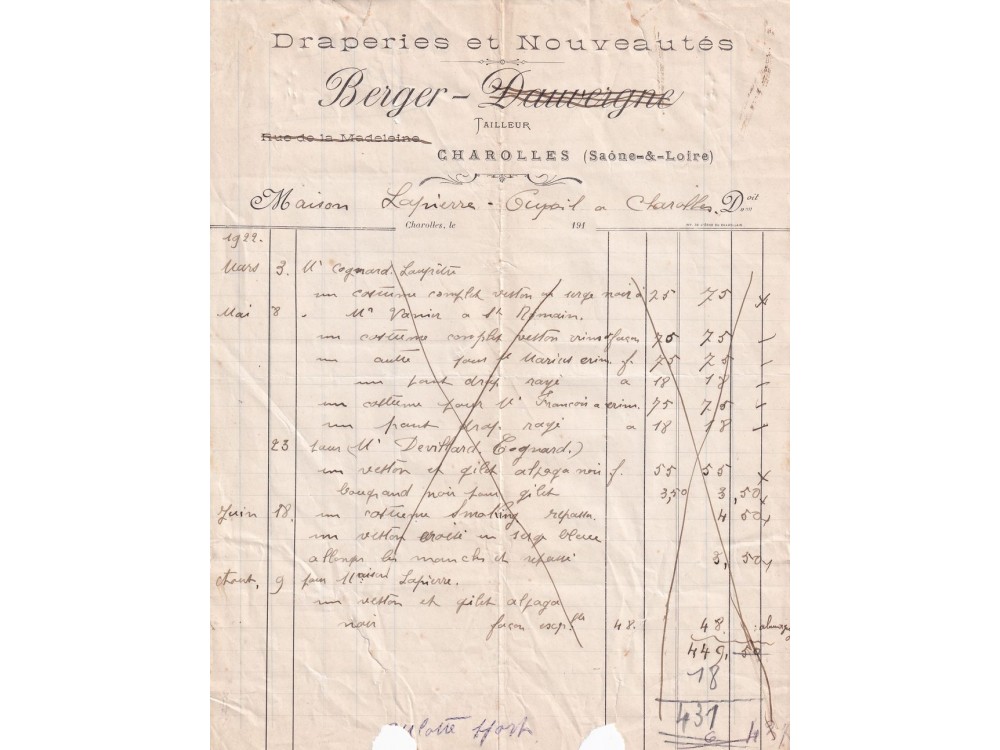 Draperies et Nouveautés
Berger-Dauvergne
Tailleur
Rue de la Madeleine
CHAROLLES (Saône-&-Loire)
Maison Lapierre - a Charolles. Doit
Charolles, le 191
1922.
Mars 3. Mr Cognard.
un costume complet veston en serge noir à 75 75 x
Mai 8 . Mr Vanier a St Romain.
un costume complet veston façon 75 75 -
un autre pour Mr Marius f. 75 75 -
un pant drap rayé a 18 18 -
un costume pour Mr François a 75 75 -
un pant drap rayé a 18 18 -
23 pour (Mr Devillard. Cognard.)
un veston et gilet alpaga noir f. 55 55 x
noir pour gilet 3,50 3,50 x
Juin 18. un costume Smoking repassé 4 50 x
un veston croisé en serge bleue
allonger les manches et repassé 3,50 x
9 pour Maison Lapierre.
un veston et gilet alpaga
noir façon 48. 48.
449,50
18
431